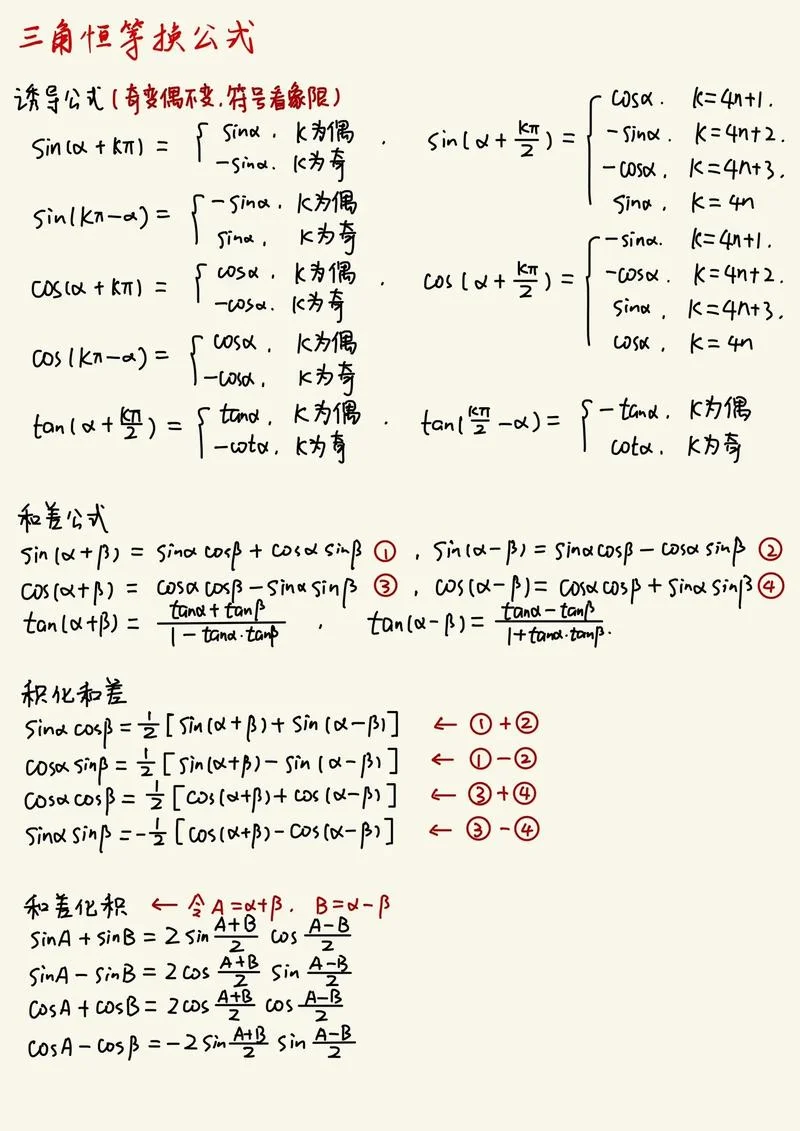 三角恒等换公式
诱导公式(奇变偶不变,符号看象限)
sin(α+kπ) = { sinα, k为偶
-sinα, k为奇
sin(α+kπ/2) = { cosα, k=4n+1.
-sinα, k=4n+2.
-cosα, k=4n+3.
sinα, k=4n
sin(kπ-α) = { -sinα, k为偶
sinα, k为奇
cos(α+kπ) = { cosα, k为偶
-cosα, k为奇
cos(α+kπ/2) = { -sinα. k=4n+1.
-cosα, k=4n+2.
sinα, k=4n+3.
cosα, k=4n
cos(kπ-α) = { cosα, k为偶
-cosα, k为奇
tan(α+kπ/2) = { tanα, k为偶
-cotα, k为奇
tan(kπ/2-α) = { -tanα, k为偶
cotα, k为奇
和差公式
sin(α+β) = sinαcosβ+cosαsinβ ① , sin(α-β) = sinαcosβ-cosαsinβ ②
cos(α+β) = cosαcosβ-sinαsinβ ③ , cos(α-β) = cosαcosβ+sinαsinβ ④
tan(α+β) = (tanα+tanβ)/(1-tanα·tanβ) , tan(α-β) = (tanα-tanβ)/(1+tanα·tanβ).
积化和差
sinαcosβ = 1/2[sin(α+β)+sin(α-β)] ← ①+②
cosαsinβ = 1/2[sin(α+β)-sin(α-β)] ← ①-②
cosαcosβ = 1/2[cos(α+β)+cos(α-β)] ← ③+④
sinαsinβ = -1/2[cos(α+β)-cos(α-β)] ← ③-④
和差化积 ← 令A=α+β. B=α-β
sinA+sinB = 2sin(A+B)/2 cos(A-B)/2
sinA-sinB = 2cos(A+B)/2 sin(A-B)/2
cosA+cosB = 2cos(A+B)/2 cos(A-B)/2
cosA-cosβ = -2sin(A+B)/2 sin(A-B)/2